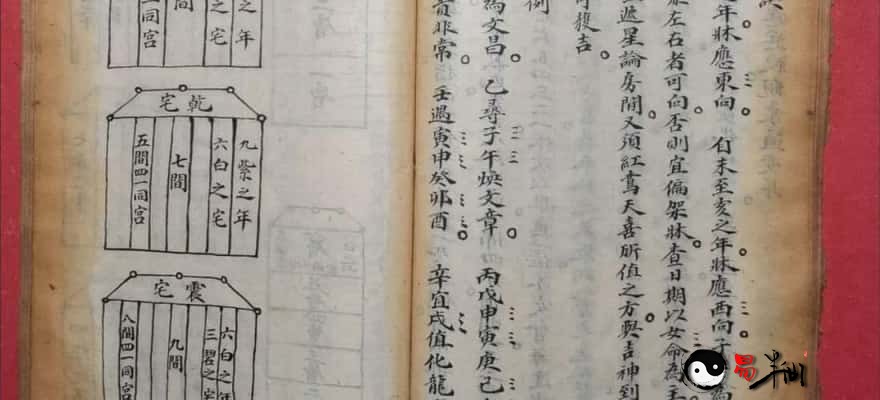 訣
之年牀應東向。自未至亥之年牀應西向子
左右者可向。否則宜偏架牀。查日期以女命為主
遞星論房間。又須紅鸞天喜所值之方。與吉神到
可獲吉。
例
為文昌。乙尋子午煥文章。丙戊申寅庚己
非常。壬過寅申癸卯酉。辛宜戌值化龍
之年
之宅
間
一同宮
乾宅
九紫之年
六白之宅
七間
五間四一同宮
震宅
六白之年
三碧之宅
九間
八間四一同宮
易半仙